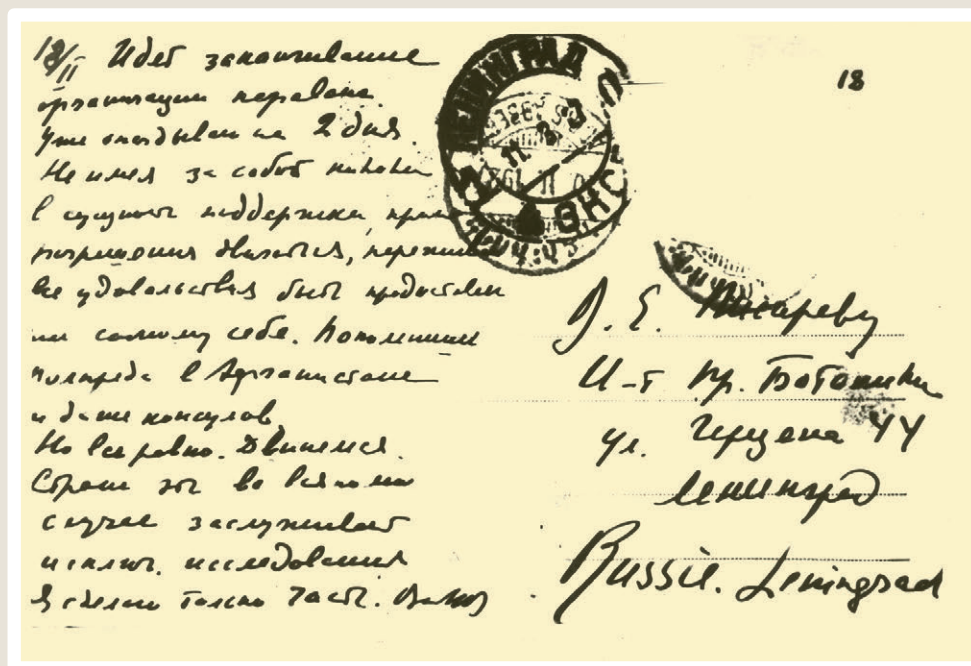 18/II Идет заканчивание
организации каравана.
Уже опаздываем на 2 дня.
Не имея за собой никакой
в сущности поддержки, кроме
разрешения двигаться,
все удовольствия быть предоставлен
ным самому себе.
полпреда в Афганистане
и даже консулов
Но все равно. Двинемся.
Страна эта во всяком
случае заслуживает
исключ. исследования
Я сделаю только часть.
18
ЛЕНИНГРАД
В. Е. Писареву
И-т пр. Ботаники
ул. Герцена 44
Ленинград
Russie. Leningrad